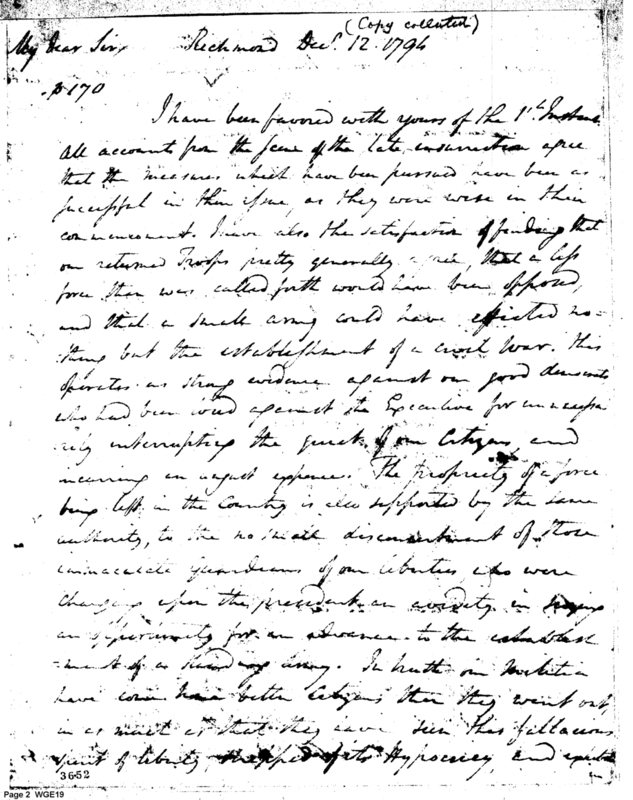 (Copy collected)
My Dear Sir, Richmond Decr. 12. 1794
$170
I have been favored with yours of the 1st. Instant
All accounts from the scene of the late insurrection agree
that the measures which have been pursued have been as
successful in their issue, as they were wise in their
commencement. I have also the satisfaction of finding that
our returned Troops pretty generally agree, that a less
force than was called forth would have been opposed,
and that a small army could have effected no-
thing but the establishment of a civil War. This
operates as strong evidence against our good democrats
who had been loud against the Executive for unnecessa
rily interrupting the quiet of our Citizens, and
incurring an expence. The propriety of a force
being left in the Country is also supported by the same
authority, to the no small discontentment of those
immaculate guardians of our liberties, who were
charging upon the president an avidity in seizing
an opportunity for an advance to the establish
-ment of a standing army. In truth our Militia
have come home better Citizens than they went out,
in as much as that they have seen this fallacious
spirit of liberty stripped of its Hypocricy, and
3652
Page 2 WGE19